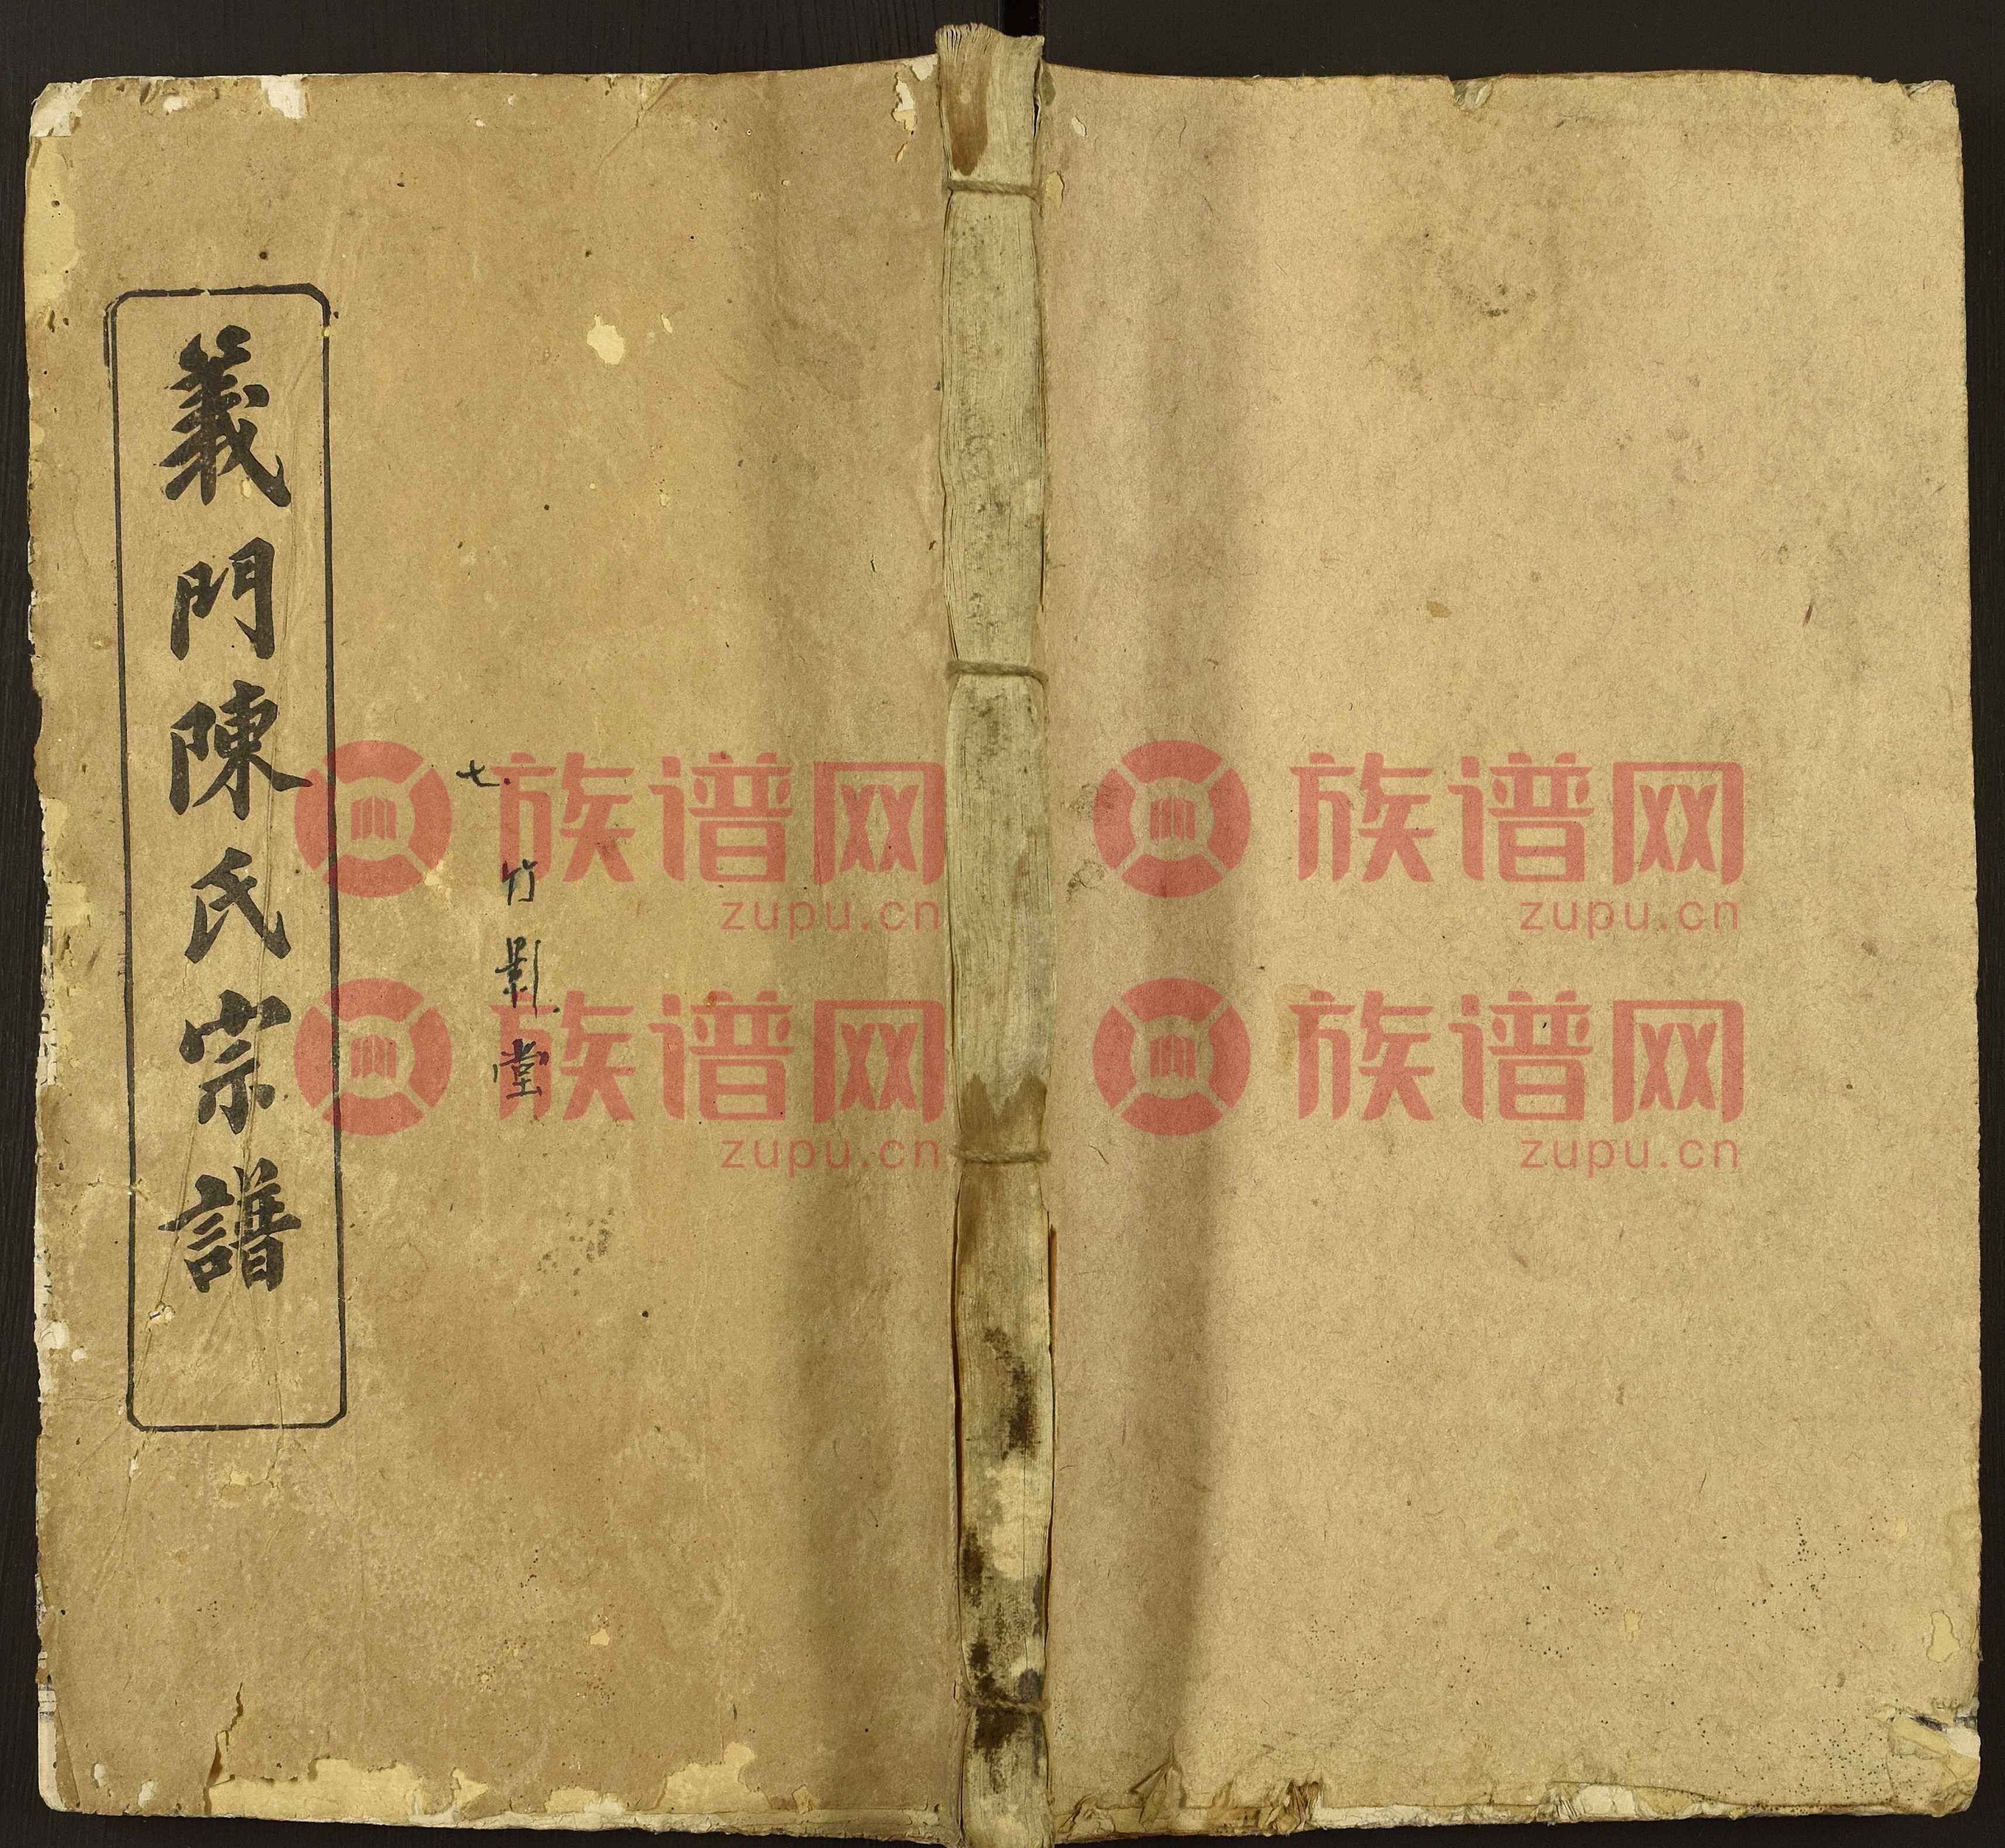 義門陳氏宗譜
七
竹影堂
族谱网
zupu.cn
族谱网
zupu.cn
族谱网
zupu.cn
族谱网
zupu.cn